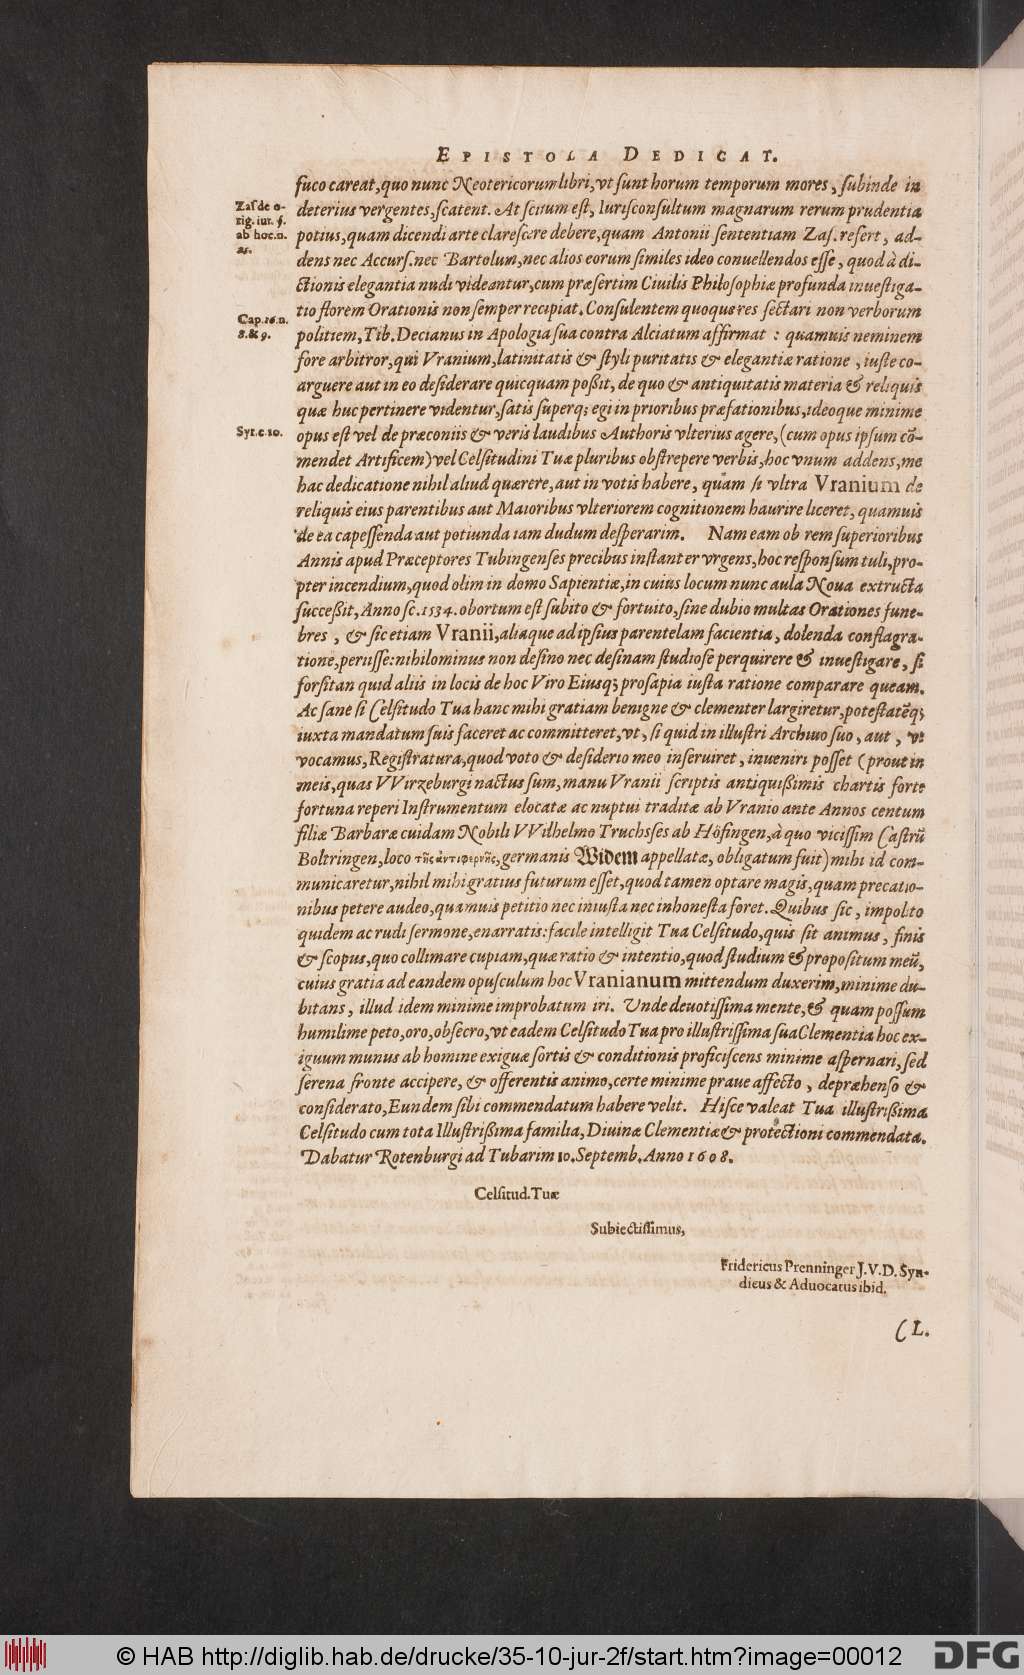 EPISTOLA DEDICAT.
fuco careat, quo nunc Neotericorum libri, vt sunt horum temporum mores, subinde in
Zas. de o-
deterius vergentes, scatent. At scitum est, Iurisconsultum magnarum rerum prudentia
rig. iur. §.
potius, quam dicendi arte clarescere debere, quam Antonii sententiam Zas. refert, ad-
ab hoc. n.
dens nec Accurs. nec Bartolum, nec alios eorum similes ideo conuellendos esse, quod à di-
25.
ctionis elegantia nudi videantur, cum præsertim Ciuilis Philosophiæ profunda inuestiga-
tio florem Orationis non semper recipiat. Consulentem quoque res sectari non verborum
Cap. 16. n.
politiem, Tib. Decianus in Apologia sua contra Alciatum affirmat : quamuis neminem
8. & 9.
fore arbitror, qui Vranium, latinitatis & styli puritatis & elegantiæ ratione, iuste co-
arguere aut in eo desiderare quicquam poßit, de quo & antiquitatis materia & reliquis
quæ huc pertinere videntur, satis superq; egi in prioribus præfationibus, ideoque minime
Syr. c. 10.
opus est vel de præconiis & veris laudibus Authoris vlterius agere, (cum opus ipsum cõ-
mendet Artificem) vel Celsitudini Tuæ pluribus obstrepere verbis, hoc vnum addens, me
hac dedicatione nihil aliud quærere, aut in votis habere, quàm si vltra Vranium de
reliquis eius parentibus aut Maioribus vlteriorem cognitionem haurire liceret, quamuis
de ea capessenda aut potiunda iam dudum desperarim. Nam eam ob rem superioribus
Annis apud Præceptores Tubingenses precibus instanter vrgens, hoc responsum tuli, pro-
pter incendium, quod olim in domo Sapientiæ, in cuius locum nunc aula Noua extructa
succeßit, Anno sc. 1534. obortum est subito & fortuito, sine dubio multas Orationes fune-
bres, & sic etiam Vranii, aliaque ad ipsius parentelam facientia, dolenda conflagra-
tione, periisse: nihilominus non desino nec desinam studiose perquirere & inuestigare, si
forsitan quid aliis in locis de hoc Viro Eiusq; prosapia iusta ratione comparare queam.
Ac sane si Celsitudo Tua hanc mihi gratiam benigne & clementer largiretur, potestatẽq;
iuxta mandatum suis faceret ac committeret, vt, si quid in illustri Archiuo suo, aut, vt
vocamus, Registratura, quod voto & desiderio meo inseruiret, inueniri posset (prout in
meis, quas VVirzeburgi nactus sum, manu Vranii scriptis antiquißimis chartis forte
fortuna reperi Instrumentum elocatæ ac nuptui traditæ ab Vranio ante Annos centum
filiæ Barbaræ cuidam Nobili VVilhelmo Truchsses ab Höfingen, à quo vicissim Castrũ
Boltringen, loco τῆς ἀντιφερνῆς, germanis Widem appellatæ, obligatum fuit) mihi id com-
municaretur, nihil mihi gratius futurum esset, quod tamen optare magis, quam precatio-
nibus petere audeo, quamuis petitio nec iniusta nec inhonesta foret. Quibus sic, impolito
quidem ac rudi sermone, enarratis: facile intelligit Tua Celsitudo, quis sit animus, finis
& scopus, quo collimare cupiam, quæ ratio & intentio, quod studium & propositum meũ,
cuius gratia ad eandem opusculum hoc Vranianum mittendum duxerim, minime du-
bitans, illud idem minime improbatum iri. Unde deuotissima mente, & quam possum
humilime peto, oro, obsecro, vt eadem Celsitudo Tua pro illustrissima sua Clementia hoc ex-
iguum munus ab homine exiguæ sortis & conditionis proficiscens minime aspernari, sed
serena fronte accipere, & offerentis animo, certe minime praue affecto, depræhenso &
considerato, Eundem sibi commendatum habere velit. Hisce valeat Tua illustrißima
Celsitudo cum tota Illustrißima familia, Diuinæ Clementiæ & protectioni commendata.
Dabatur Rotenburgi ad Tubarim 10. Septemb. Anno 1608.
Celsitud. Tuæ
Subiectissimus,
Fridericus Prenninger J. V. D. Syn-
dicus & Aduocatus ibid.
CL.
© HAB http://diglib.hab.de/drucke/35-10-jur-2f/start.htm?image=00012
DFG